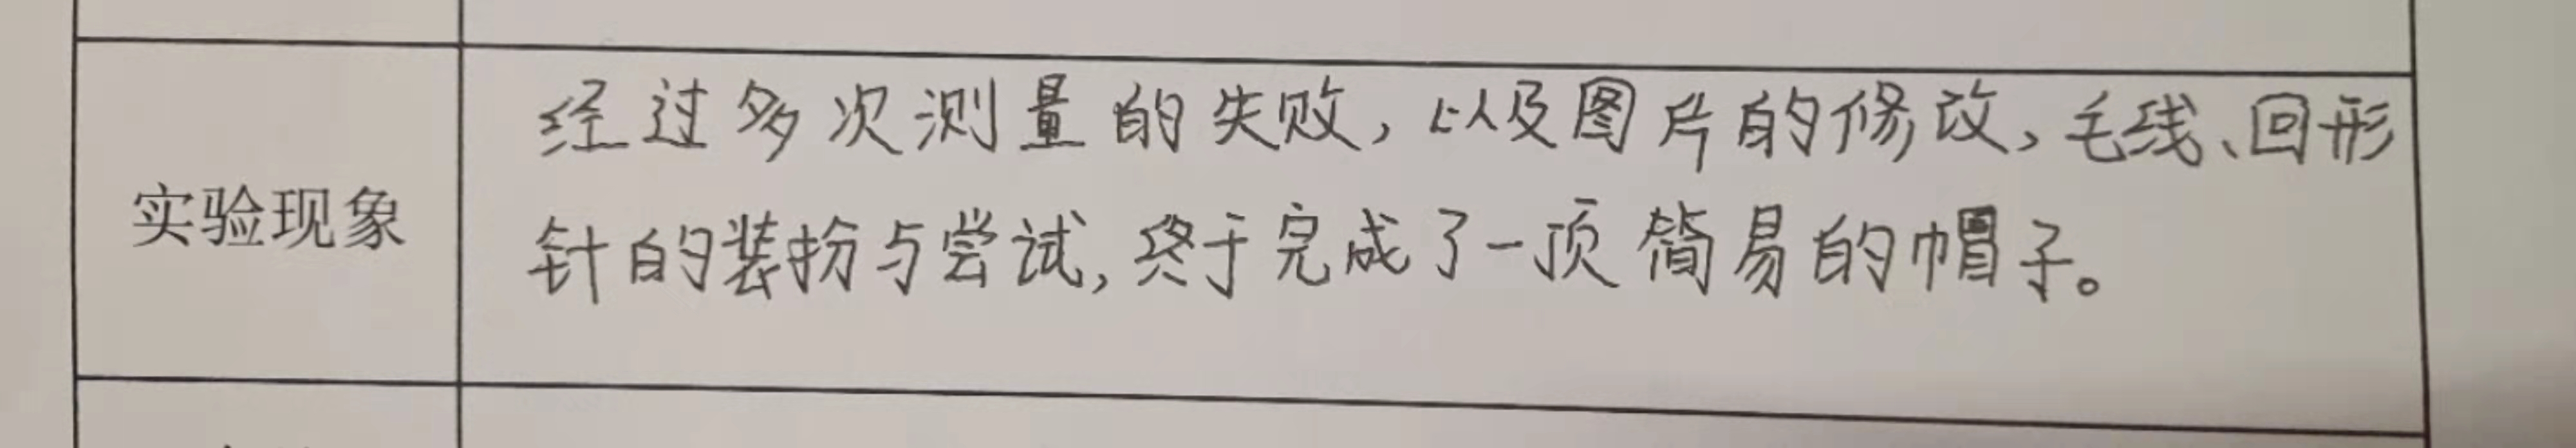 经过多次测量的失败，以及图片的修改，毛线、回形
实验现象
针的装扮与尝试，终于完成了一顶简易的帽子。